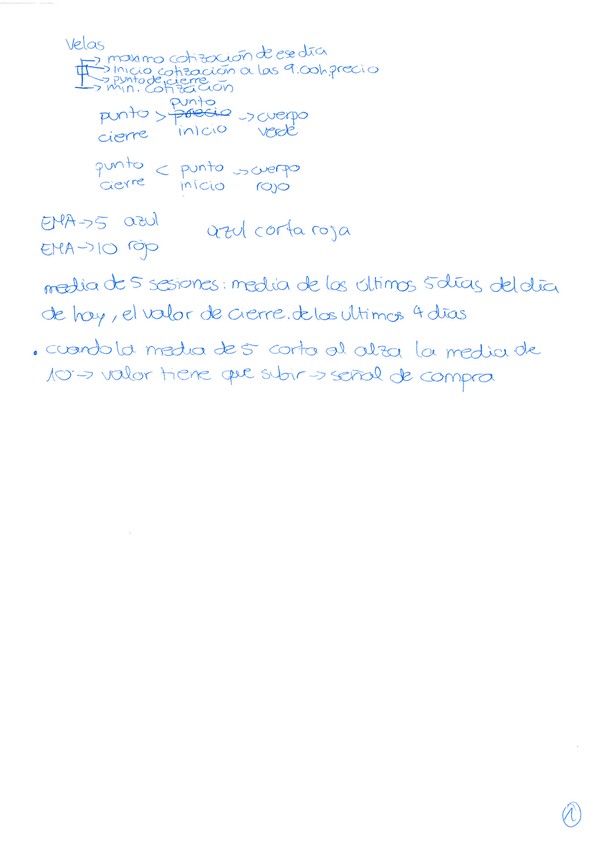 Velas
→ maximo cotización de ese día
→ inicio cotización a las 9.00h. precio
→ punto de cierre
→ min. cotización
punto
punto > precio → cuerpo
cierre inicio verde
punto < punto → cuerpo
cierre inicio rojo
EMA → 5 azul
azul corta roja
EMA → 10 rojo
media de 5 sesiones: media de los últimos 5 días del día
de hoy, el valor de cierre. de los ultimos 4 días
• cuando la media de 5 corta al alza la media de
10 → valor tiene que subir → señal de compra
1